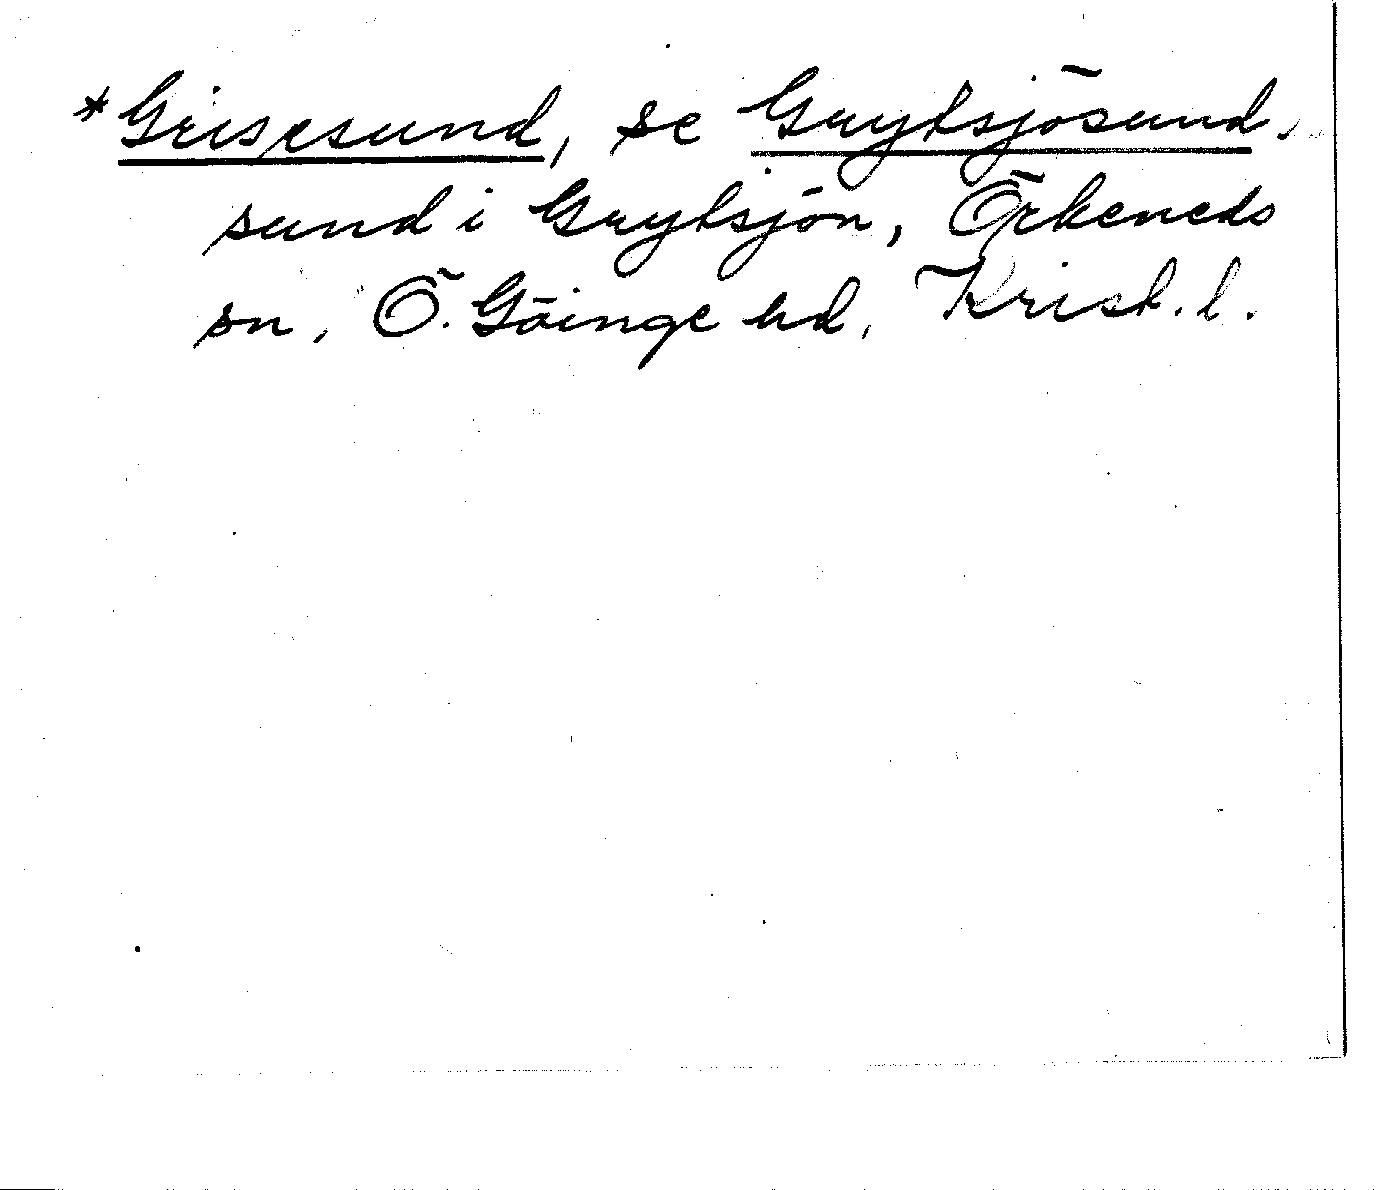 *Grisesund, se Grytsjösund,
sund i Grytsjön, Örkeneds
sn, Ö. Göinge hd, Krist. l.